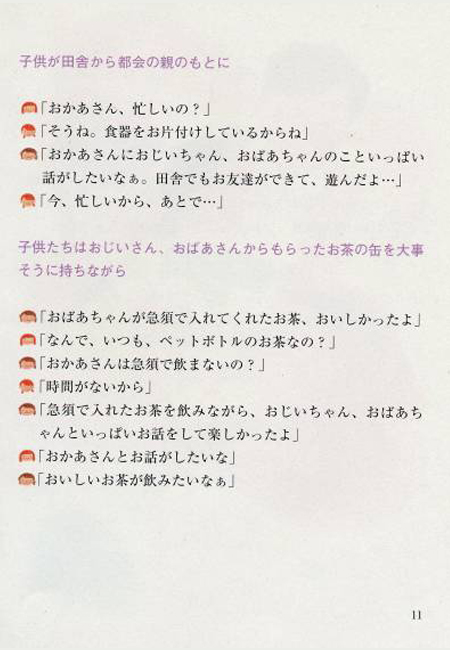 子供が田舎から都会の親のもとに
「おかあさん、忙しいの？」
「そうね。食器をお片付けしているからね」
「おかあさんにおじいちゃん、おばあちゃんのこといっぱい
話がしたいなぁ。田舎でもお友達ができて、遊んだよ…」
「今、忙しいから、あとで…」
子供たちはおじいさん、おばあさんからもらったお茶の缶を大事
そうに持ちながら
「おばあちゃんが急須で入れてくれたお茶、おいしかったよ」
「なんで、いつも、ペットボトルのお茶なの？」
「おかあさんは急須で飲まないの？」
「時間がないから」
「急須で入れたお茶を飲みながら、おじいちゃん、おばあち
ゃんといっぱいお話をして楽しかったよ」
「おかあさんとお話がしたいな」
「おいしいお茶が飲みたいなぁ」
11